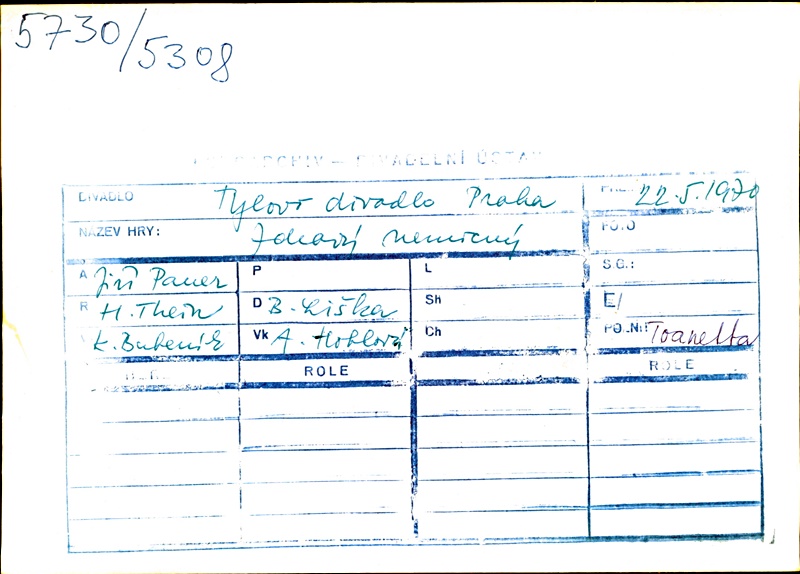 5730/5308
FOTOARCHIV – DIVADELNÍ ÚSTAV
DIVADLO Tylovo divadlo Praha 22.5.1970
NÁZEV HRY: Zdravý nemocný FO.O
A Jiří Pauer P L S.G.:
R H. Thein D B. Liška Sh E/
K. Bubeník Vk A. Hoblová Ch PO.N: Toanetta
ROLE ROLE